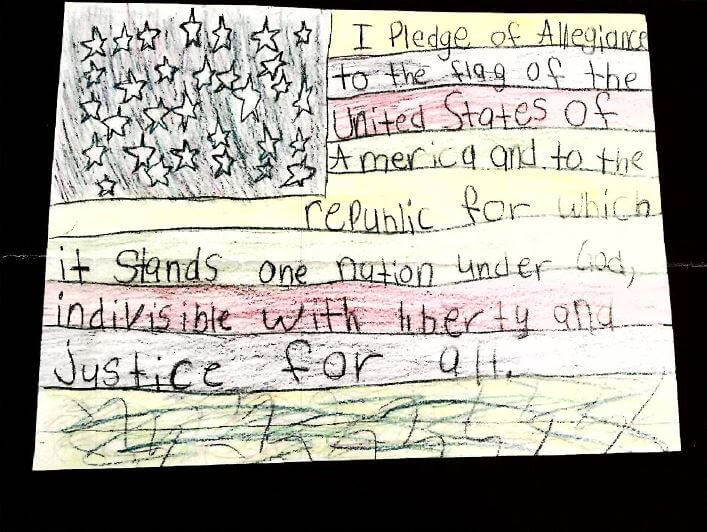 I Pledge of Allegiance
to the flag of the
United States of
America and to the
republic for which
it Stands one nation under God,
indivisible with liberty and
justice for all.